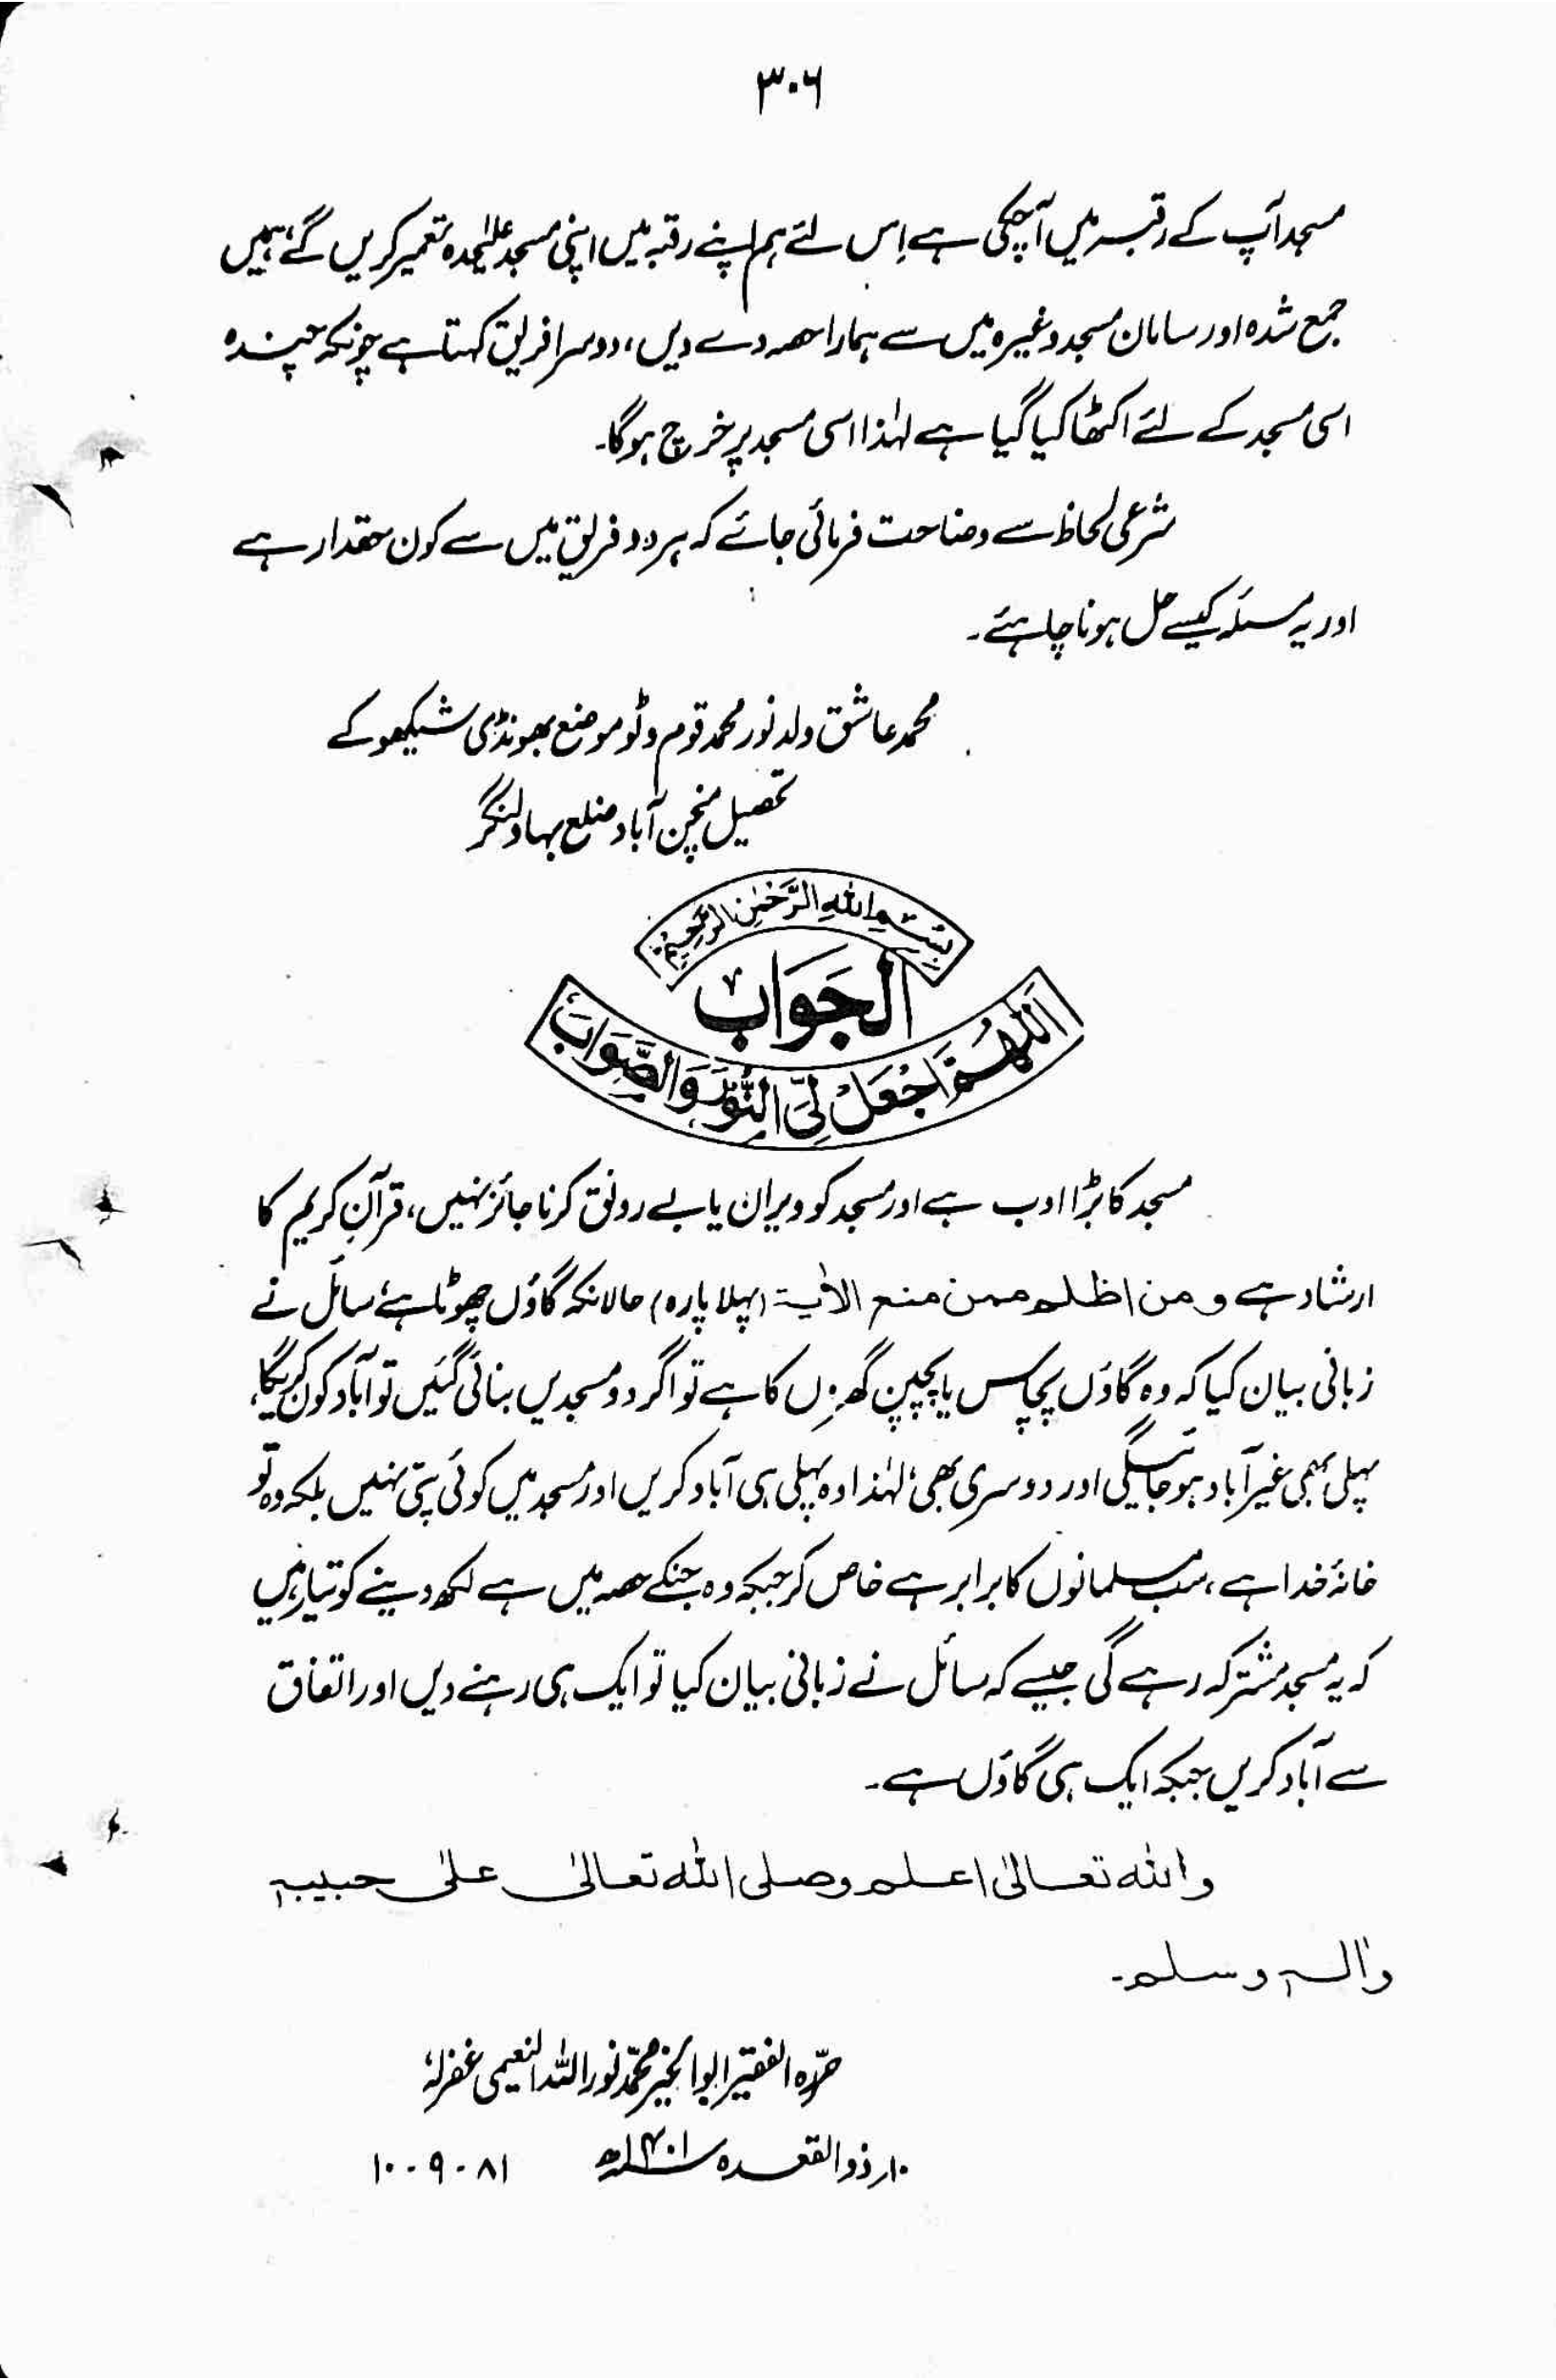 ۳۰۶
مسجد آپ کے رقبہ میں آچکی ہے اِس لئے ہم اپنے رقبہ میں اپنی مسجد علیٰحدہ تعمیر کریں گے، ہمیں
جمع شدہ اور سامان مسجد وغیرہ میں سے ہمارا حصہ دے دیں، دوسرا فریق کہتا ہے چونکہ چندہ
اسی مسجد کے لئے اکٹھا کیا گیا ہے لہٰذا اسی مسجد پر خرچ ہوگا۔
شرعی لحاظ سے وضاحت فرمائی جائے کہ ہر دو فریق میں سے کون حقدار ہے
اور یہ مسئلہ کیسے حل ہونا چاہئے۔
محمد عاشق ولد نور محمد قوم وٹو موضع بھونڈی شیکھو کے
تحصیل منچن آباد ضلع بہاولنگر
بِسْمِ اللهِ الرَّحْمٰنِ الرَّحِيْمِ
اَلْجَوَابُ
اَللّٰهُمَّ اجْعَلْ لِّىَ النُّوْرَ وَالصَّوَابَ
مسجد کا بڑا ادب ہے اور مسجد کو ویران یا بے رونق کرنا جائز نہیں، قرآنِ کریم کا
ارشاد ہے ومن اظلم ممن منع الاٰیۃ (پہلا پارہ) حالانکہ گاؤں چھوٹا ہے، سائل نے
زبانی بیان کیا کہ وہ گاؤں پچاس یا پچپن گھروں کا ہے تو اگر دو مسجدیں بنائی گئیں تو آباد کون کریگا،
پہلی بھی غیر آباد ہو جائیگی اور دوسری بھی، لہٰذا وہ پہلی ہی آباد کریں اور مسجد میں کوئی پتی نہیں بلکہ وہ تو
خانۂ خدا ہے، سب مسلمانوں کا برابر ہے خاص کر جبکہ وہ جنکے حصہ میں ہے لکھ دینے کو تیار ہیں
کہ یہ مسجد مشترکہ رہے گی جیسے کہ سائل نے زبانی بیان کیا تو ایک ہی رہنے دیں اور اتفاق
سے آباد کریں جبکہ ایک ہی گاؤں ہے۔
واللہ تعالیٰ اعلم وصلی اللہ تعالیٰ علیٰ حبیبہ
واٰلہ وسلم۔
حرّرہ الفقیر ابوالخیر محمّد نور اللہ النعیمی غفرلہٗ
۱۰؍ ذوالقعدہ ۱۴۰۱ھ ۱۰-۹-۸۱